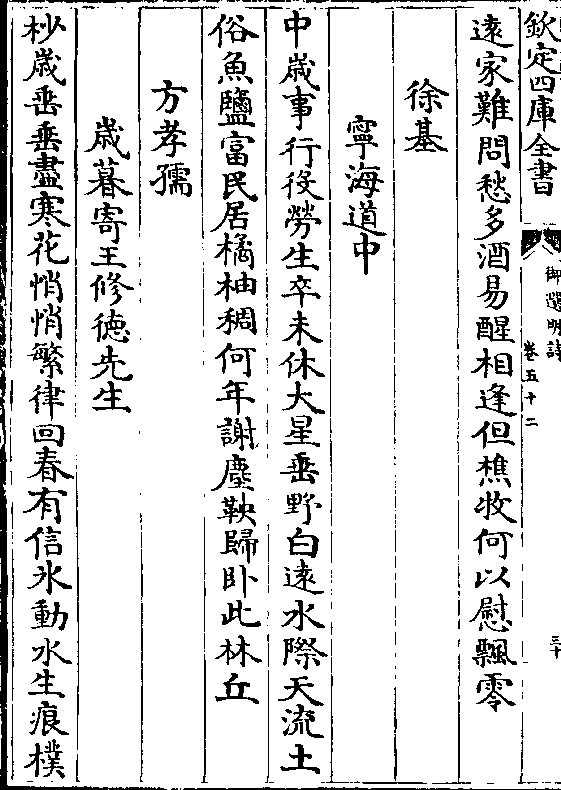 欽定四庫全書
御選明詩
卷五十二
三十
遠家難問愁多酒易醒相逢但樵牧何以慰飄零
徐基
寧海道中
中歲事行役勞生卒未休大星垂野白遠水際天流土
俗魚鹽富民居橘柚稠何年謝塵鞅歸卧此林丘
方孝孺
歲暮寄王修德先生
杪歲垂垂盡寒花悄悄繁律回春有信氷動水生痕樸